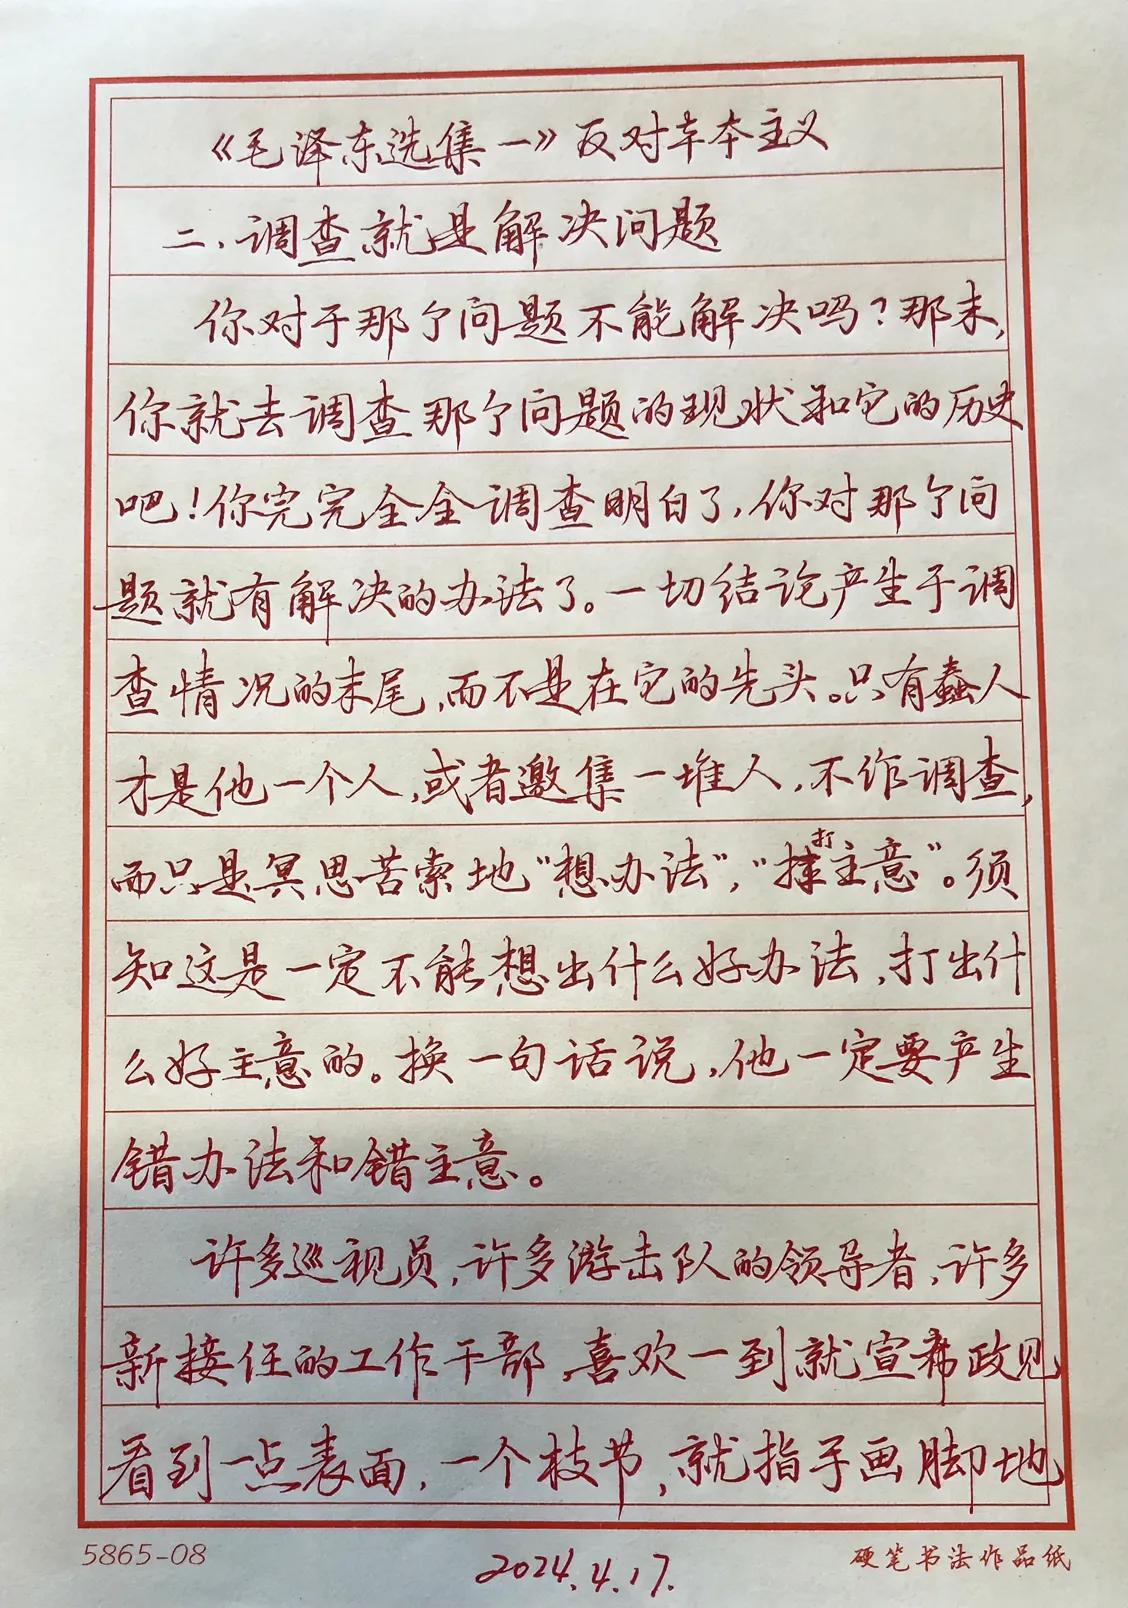 《毛泽东选集一》反对本本主义
二、调查就是解决问题
你对于那个问题不能解决吗？那末，
你就去调查那个问题的现状和它的历史
吧！你完完全全调查明白了，你对那个问
题就有解决的办法了。一切结论产生于调
查情况的末尾，而不是在它的先头。只有蠢人
才是他一个人，或者邀集一堆人，不作调查，
而只是冥思苦索地“想办法”，“打主意”。须
知这是一定不能想出什么好办法，打出什
么好主意的。换一句话说，他一定要产生
错办法和错主意。
许多巡视员，许多游击队的领导者，许多
新接任的工作干部，喜欢一到就宣布政见
看到一点表面，一个枝节，就指手画脚地
5865-08
2024.4.17.
硬笔书法作品纸